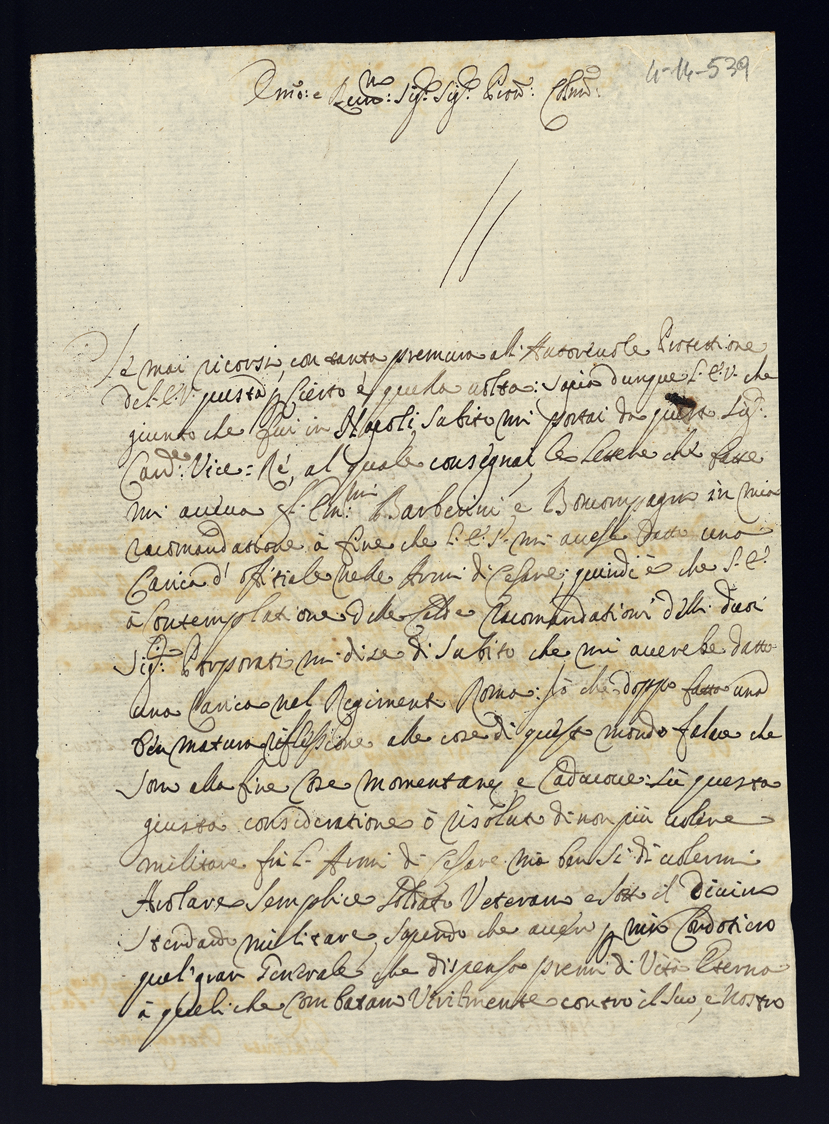 4-14-539
Emo: e Revmo: Sigr. Sigr. Pron: Colmo:
Se mai ricorsi, con tanta premura all' Autorevole Protettione
dell' E.V. questa p cierto è quella volta: sapia dunque l' E.V. che
giunto che fui in Napoli subito mi portai da questo Sigr.
Cardle: Vice=Ré, al quale consegnai le lettere che fatte
mi aveva gl' Emmi: Barberini e Boncompagni in mia
racomandatione à fine che l' E.S. mi avesse datto una
Carica d' offitiale nelle Armi di Cesare; quindi è che S. E.
à Contemplatione delle calde Racomandationi delli duoi
Sigri: Porporati mi dise di subito che mi averebe datto
una Carica nel Regimento Roma: ciò che doppo fatto una
ben matura riflessione alle cose di questo mondo falace che
sono alla fine Cose momentanee e Caducone: Sù questa
giusta consideratione ò risoluto di non più volere
militare frà l' Armi di Cesare ma ben sì di volermi
Arolare semplice soldato Veterano e sotto il divino
stendardo militare, sapendo che avevo p mio Condotiero
quel' gran Generale che dispensa premi di Vita Eterna
à queli che Combatano Virilmente contro il suo, e nostro